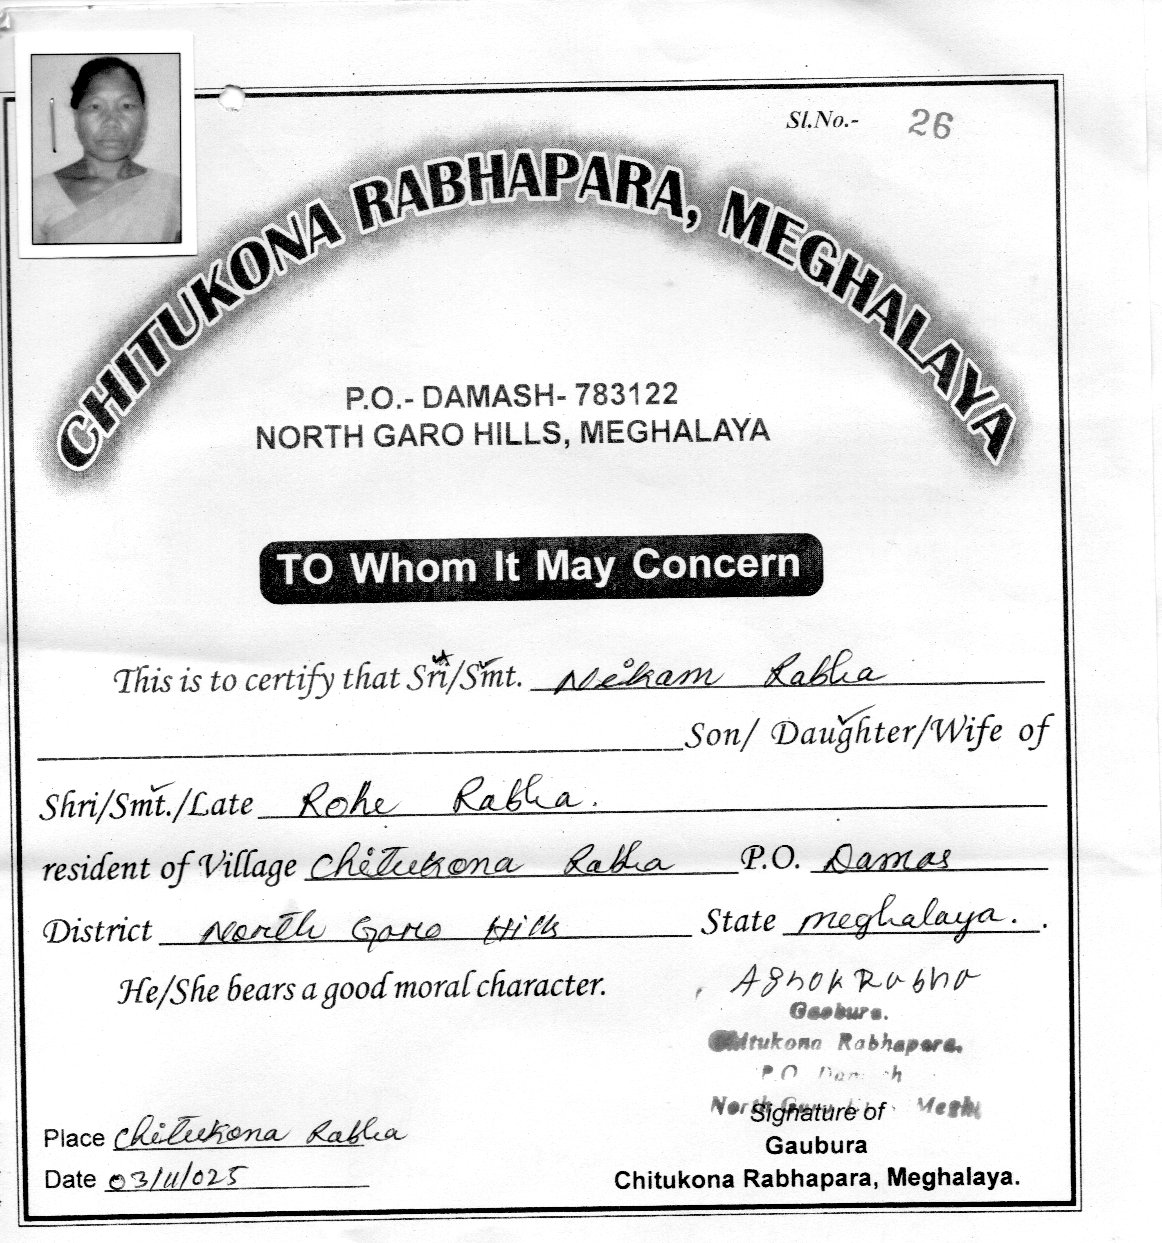 Sl.No.- 26
CHITUKONA RABHAPARA, MEGHALAYA
P.O.- DAMASH- 783122
NORTH GARO HILLS, MEGHALAYA
TO Whom It May Concern
This is to certify that Sri/Smt. Nikam Rabha
Son/ Daughter/Wife of
Shri/Smt./Late Rohe Rabha.
resident of Village Chitukona Rabha P.O. Damas
District North Garo Hills State meghalaya.
He/She bears a good moral character.
Ashok Rabha
Gaobura.
Chitukona Rabhapara.
P.O
North
Signature of
Place Chitukona Rabha
Gaubura
Date 03/11/025
Chitukona Rabhapara, Meghalaya.